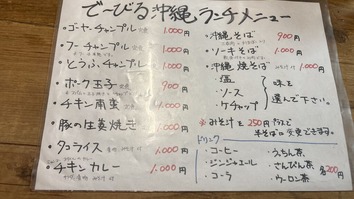 でーびる沖縄ランチメニュー
・ゴーヤーチャンプル 定食 1.000円
・フーチャンプル 定食 1.000円
・とうふチャンプル 1.000円
・ポーク玉子 定食 900円
・チキン南蛮 1.000円
・豚の生姜焼き 1.000円
・タコライス 1.000円
・チキンカレー 1.000円
・沖縄そば 900円
・ソーキそば 1.000円
・沖縄焼そば 1.000円
・塩
・ソース
・ケチャップ
味を選んで下さい。
※みそ汁を250円プラスで
半そばに変更できます。
ドリンク
・コーヒー
・ジンジャエール
・コーラ
・うっちん茶
・さんぴん茶
・ウーロン茶
各200円